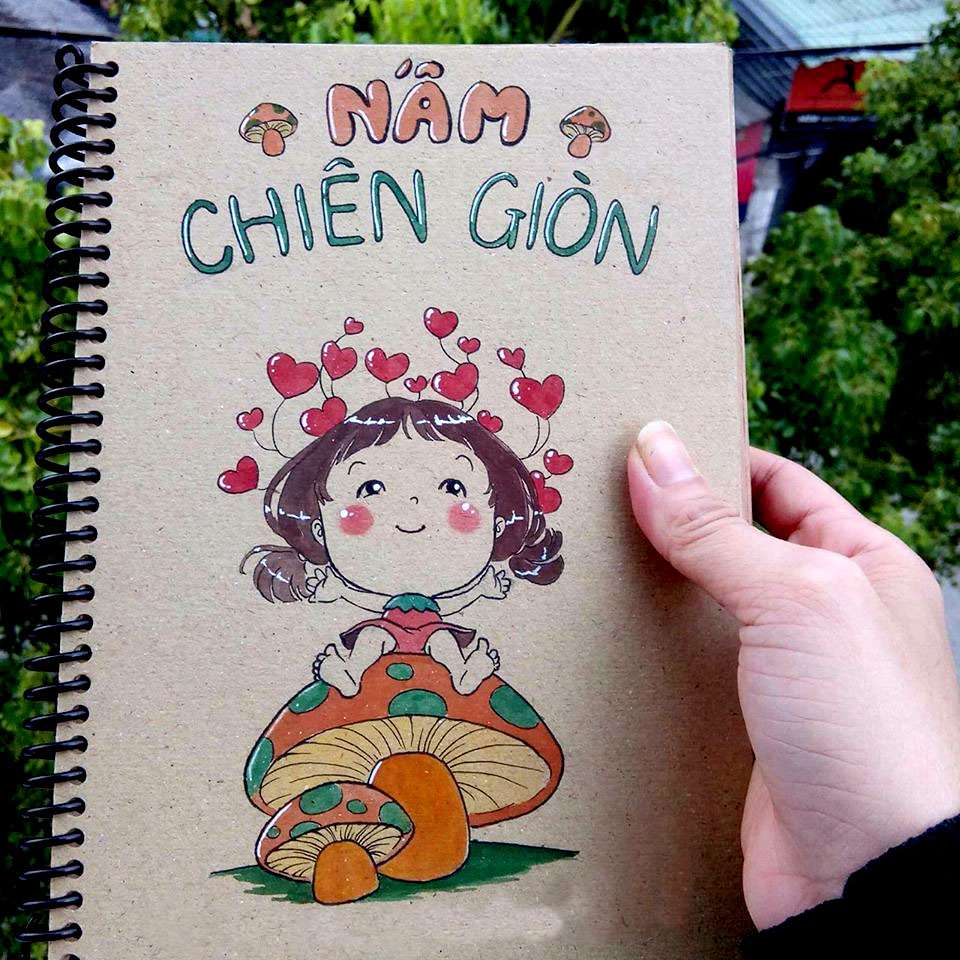 NẤM
CHIÊN GIÒN